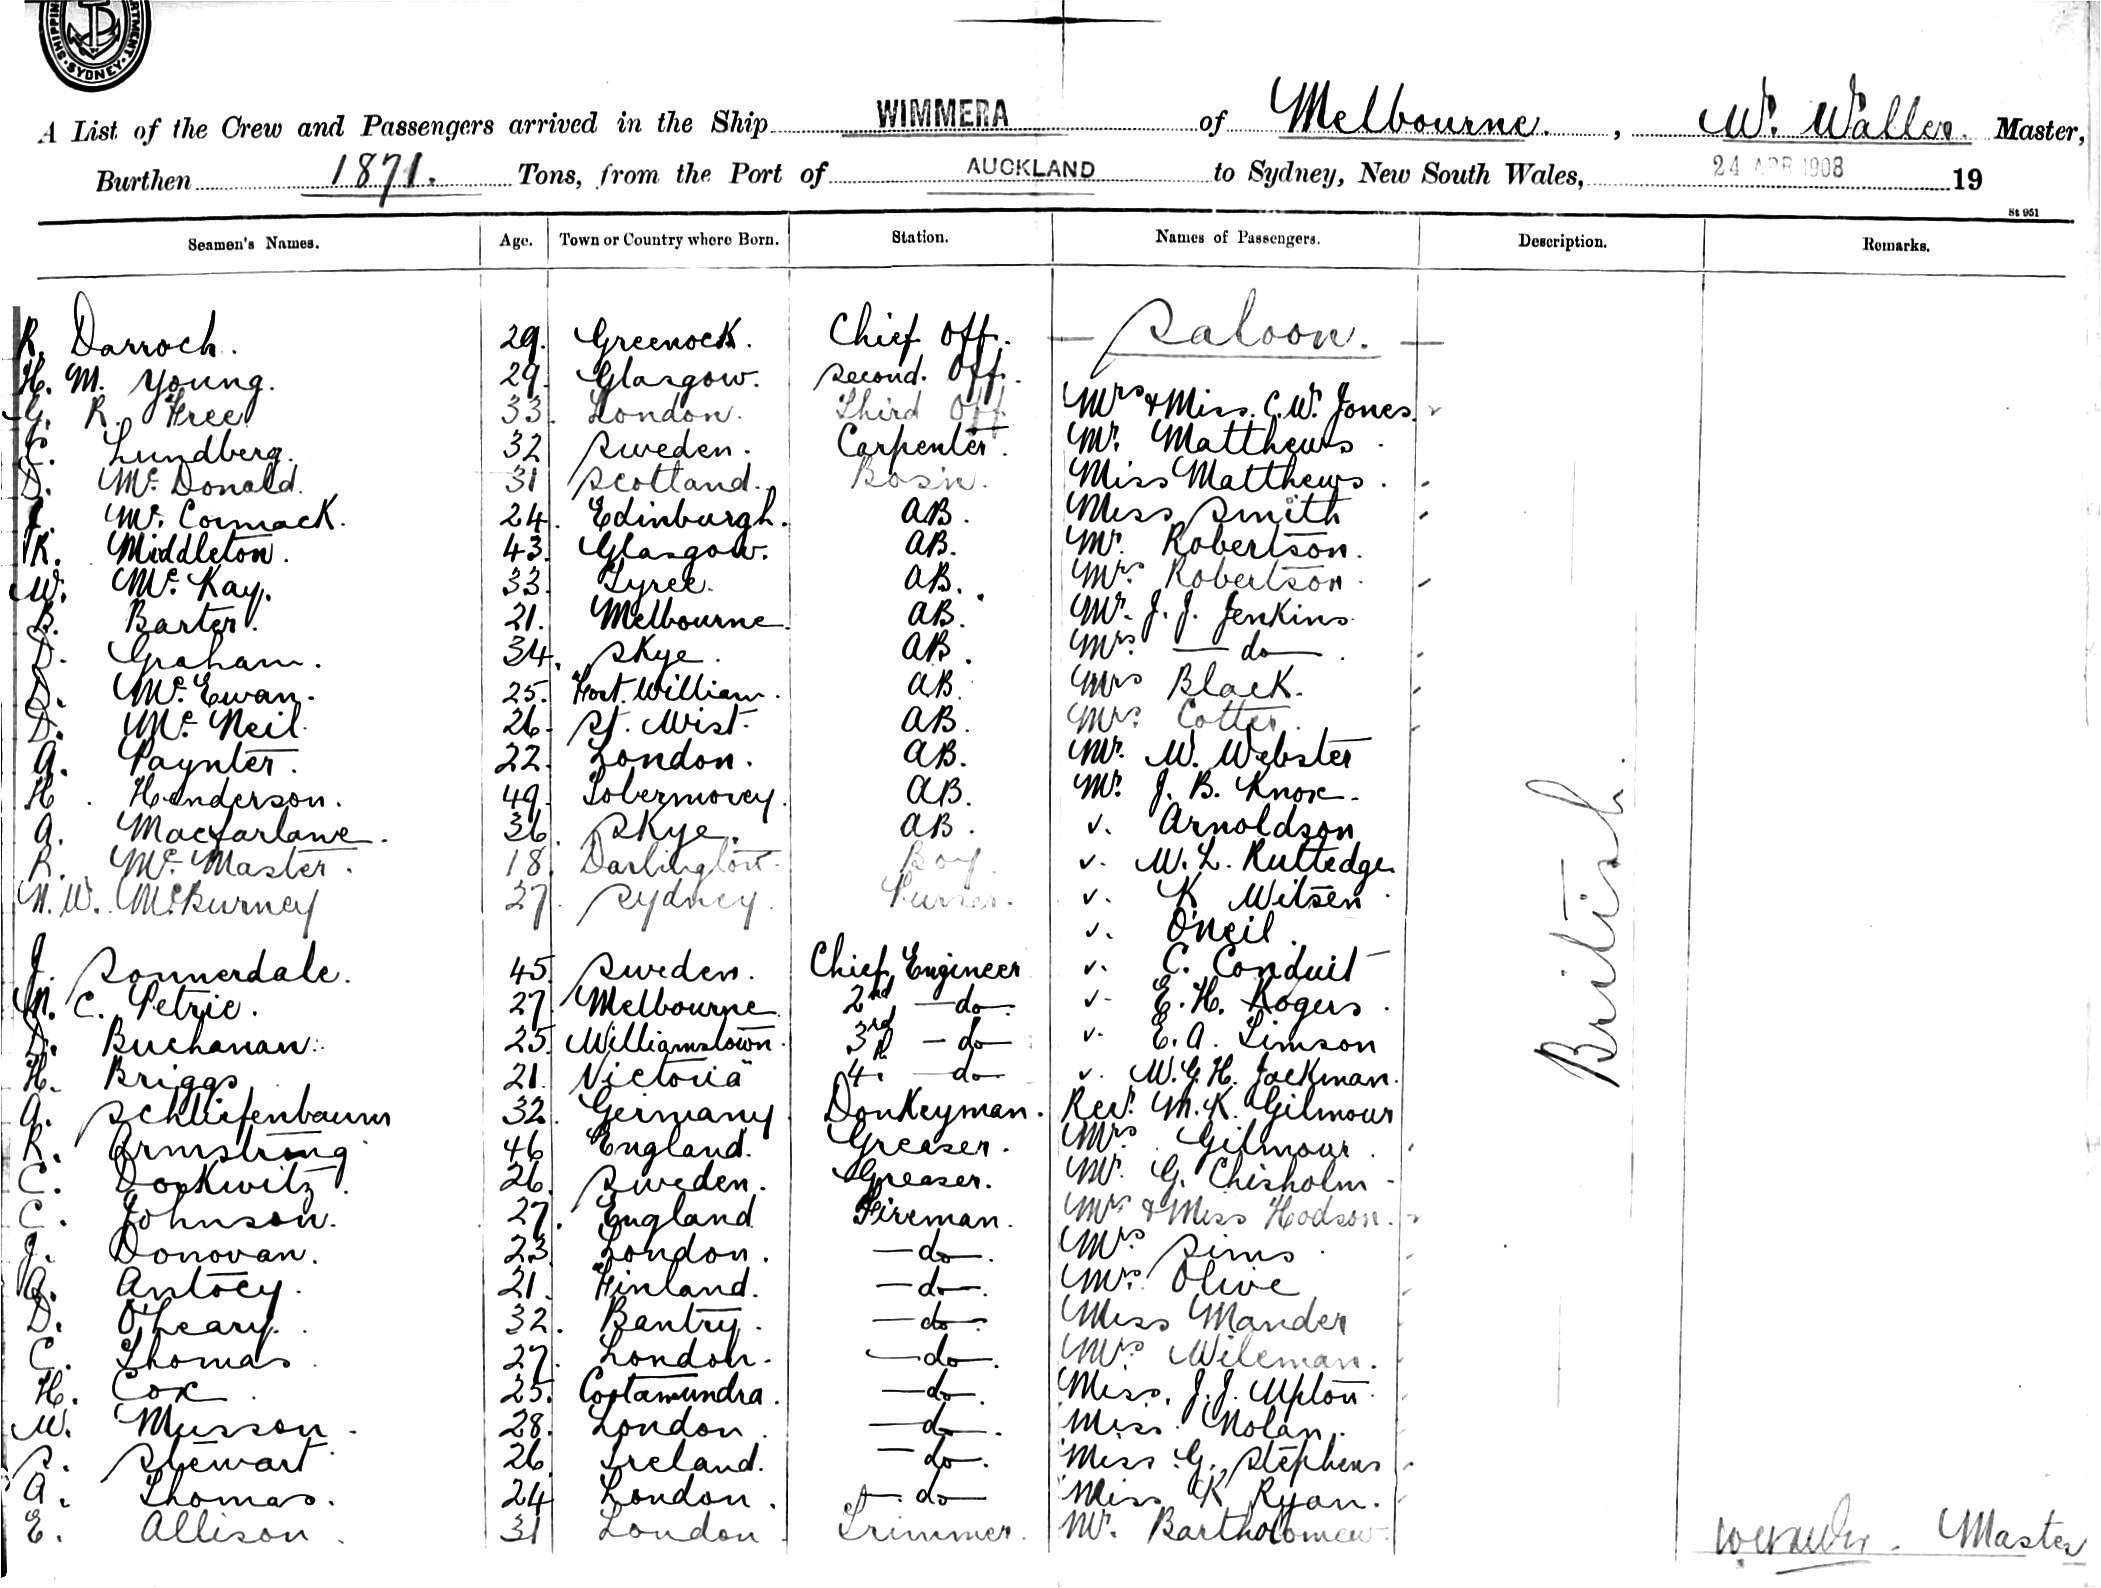 SHIPPING DEPARTMENT. SYDNEY.
A List of the Crew and Passengers arrived in the Ship WIMMERA of Melbourne. , W. Waller. Master,
Burthen 1871. Tons, from the Port of AUCKLAND to Sydney, New South Wales, 24 APR 1908 19
St 951
Seamen's Names. Age. Town or Country where Born. Station. Names of Passengers. Description. Remarks.
R. Darroch. 29. Greenock. Chief Off. — Saloon. —
H. M. Young. 29. Glasgow. Second. Off.
G. R. Free 33. London. Third Off Mrs & Miss. C. W. Jones.
C. Lundberg. 32 Sweden. Carpenter. Mr. Matthews.
D. Mc. Donald. 31 Scotland. Bosn. Miss Matthews.
J. Mc. Cormack. 24. Edinburgh. AB. Miss Smith
K. Middleton. 43. Glasgow. AB. Mr. Robertson.
W. Mc. Kay. 33. Tyree. AB. Mrs Robertson.
B. Barter. 21. Melbourne. AB. Mr. J. J. Jenkins
D. Graham. 34. Skye. AB. Mrs — do — .
D. Mc. Ewan. 25. Fort. William. AB. Mrs Black.
D. Mc. Neil. 26. St. Wist. AB. Mrs. Cotter.
A. Paynter. 22. London. AB. Mr. W. Webster
H. Henderson. 49. Tobermorey. AB. Mr. J. B. Knox.
A. Macfarlane. 36. Skye. AB. v. Arnoldson
R. Mc. Master. 18. Darlington. Boy. v. W. L. Ruttedge.
N. W. McBurney 27. Sydney. Purser. v. K Witsen
v. O'Neil
J. Sonnerdale. 45. Sweden. Chief, Engineer v. C. Conduit
N. C. Petrie. 27. Melbourne 2nd — do — v. E. H. Rogers.
D. Buchanan. 25. Williamstown. 3rd — do v. E. A. Simson
H. Briggs 21. Victoria 4. — do v. W. G. H. Jackman.
A. Schliefenbaum 32. Germany Donkeyman. Revd. M. K. Gilmour
R. Armstrong 46 England. Greaser. Mrs Gilmour.
C. Dorkwitz. 26. Sweden. Greaser. Mr. G. Chisholm
C. Johnson. 27. England Fireman. Mrs & Miss Hodson.
J. Donovan. 23. London. — do — . Mrs Sims
A. Antoey. 21. Finland. — do — . Mrs. Olive
D. O'Leary. 32. Bantry. — do — . Miss Mander
C. Thomas 27. London. — do — . Mrs Wileman.
H. Cox 25. Cootamundra. — do — . Miss. J. J. Upton
W. Musson. 28. London. — do — . Miss Nolan.
S. Stewart 26. Ireland. — do — . Miss G. Stephens
A. Thomas. 24 London. — do — Miss K Ryan.
E. Allison. 31 London Trimmer. Mr. Bartholomew
British.
Master